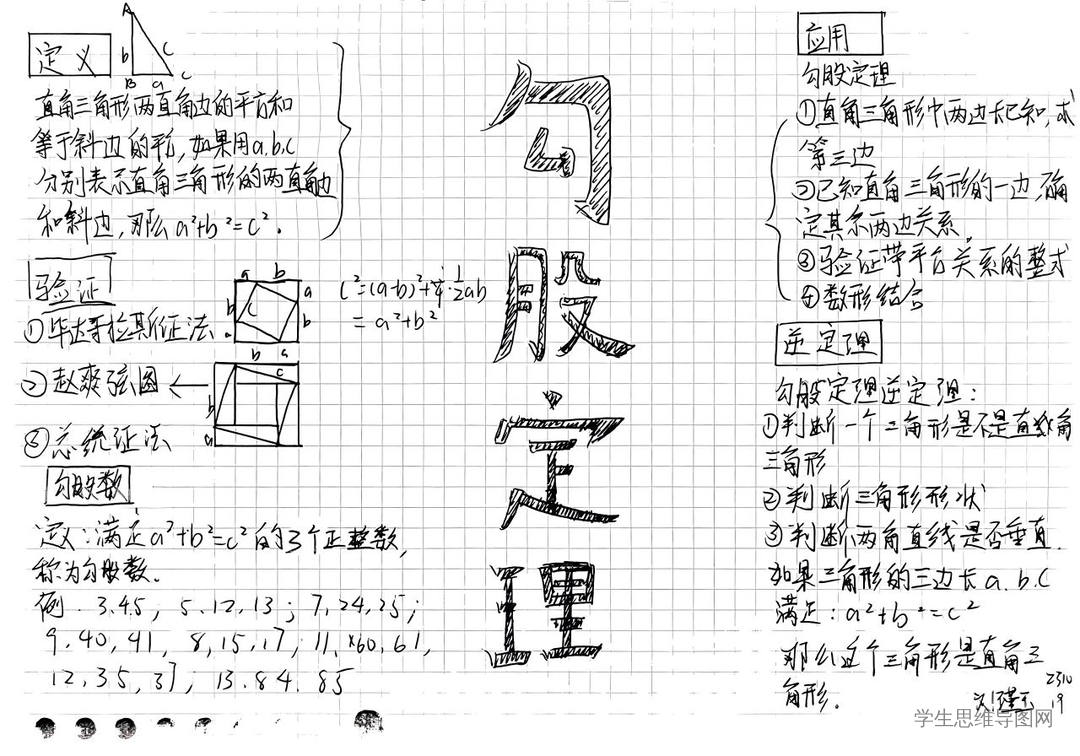 定义
A
b
c
B
a
C
直角三角形两直角边的平方和
等于斜边的平方,如果用a.b.c
分别表示直角三角形的两直角边
和斜边,那么a²+b²=c².
验证
①毕达哥拉斯证法
a b
a
b
b
c
b a
C²=(a-b)²+4·1/2ab
=a²+b²
②赵爽弦图
c
b
a
③总统证法
勾股数
定义:满足a²+b²=c²的3个正整数,
称为勾股数.
例.3.4.5; 5.12.13; 7,24,25;
9.40,41, 8,15,17; 11.60,61,
12,35,37; 13.84.85
勾股定理
应用
勾股定理
①直角三角形中两边长已知,求
第三边
②已知直角三角形的一边,确
定其余两边关系.
③验证带平方关系的整式
④数形结合
逆定理
勾股定理逆定理:
①判断一个三角形是不是直角
三角形
②判断三角形形状
③判断两角直线是否垂直.
如果三角形的三边长a.b.c
满足:a²+b²=c²
那么这个三角形是直角三
角形.
2310
19
学生思维导图网